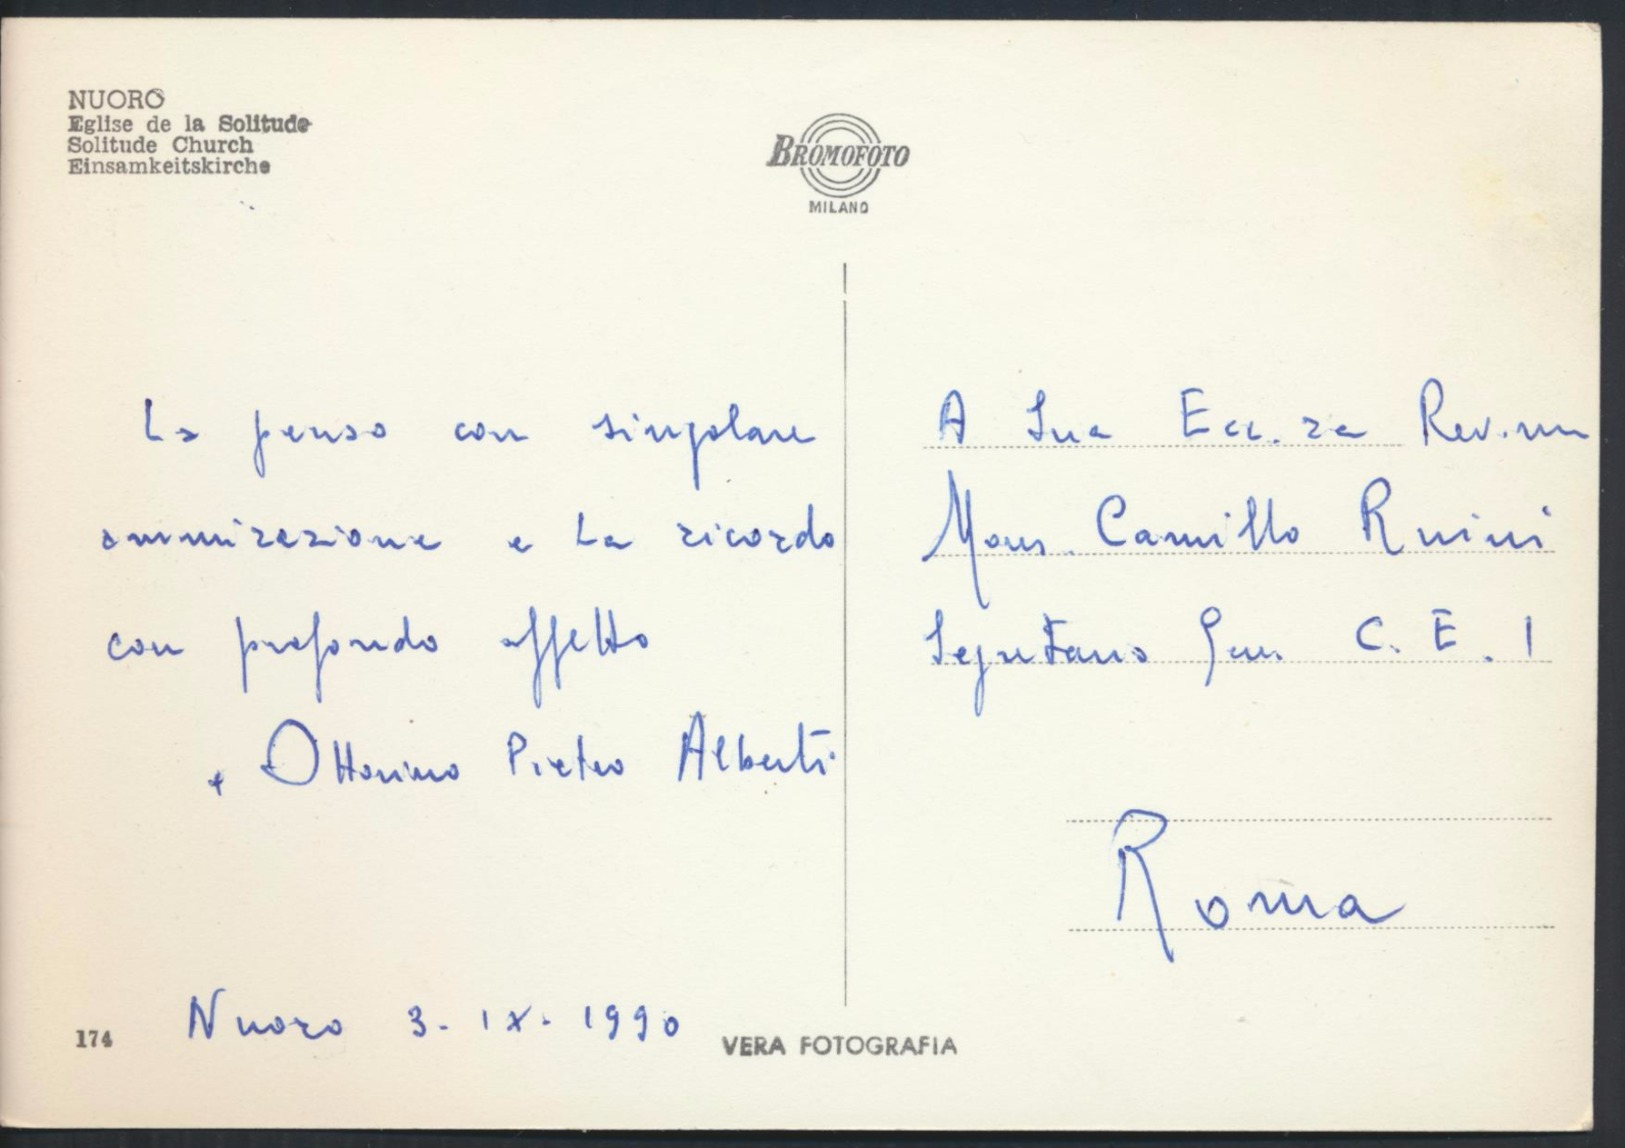 NUORO
Eglise de la Solitude
Solitude Church
Einsamkeitskirche
BROMOFOTO
MILANO
La penso con singolare
ammirazione e La ricordo
con profondo affetto
+ Ottorino Pietro Alberti
Nuoro 3-IX-1990
A Sua Ecc.za Rev.ma
Mons. Camillo Ruini
Segretario Gen. C.E.I
Roma
174
VERA FOTOGRAFIA